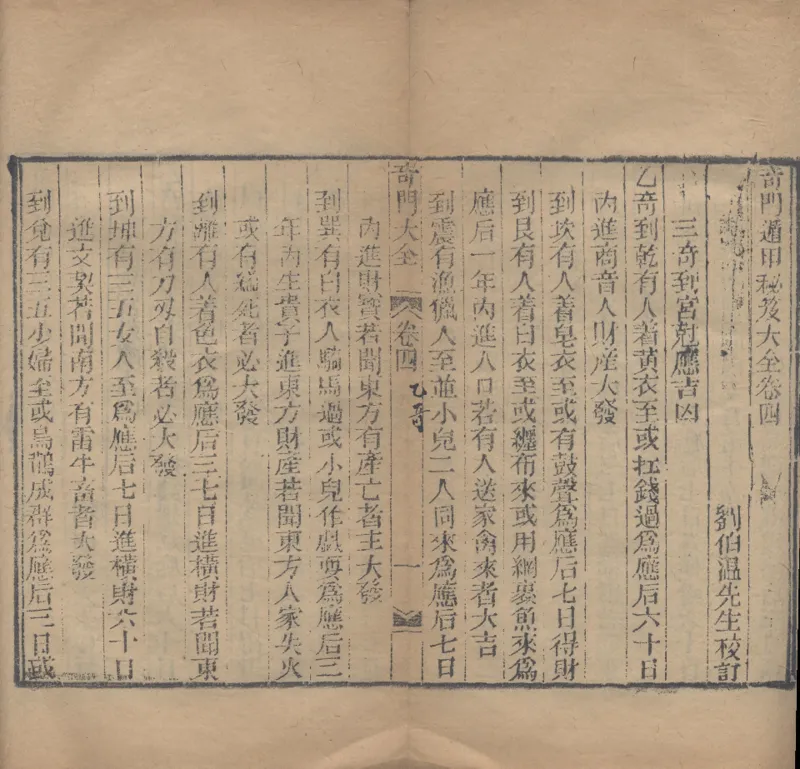 奇門遁甲秘笈大全卷四
劉伯温先生校訂
三奇到宮尅應吉凶
乙奇到乾有人着黄衣至或扛錢過為應后六十日
内進商音人財産大發
到坎有人着皂衣至或有鼓聲為應后七日得財
到艮有人着白衣至或纏布來或用網裹魚來為
應后一年内進人口若有人送家禽來者大吉
到震有漁獵人至並小兒二人同來為應后七日
奇門大全 卷四 乙奇 一
内進財寳若聞東方有產亡者主大發
到巽有白衣人騎馬過或小兒作戯耍為應后三
年内生貴子進東方財產若聞東方人家失火
或有縊死者必大發
到離有人着色衣為應后三七日進横財若聞東
方有刀刃自殺者必大發
到坤有三五女人至為應后七日進横財六十日
進文契若聞南方有雷牛畜者大發
到兌有三五少婦至或烏鵲成群為應后三日或